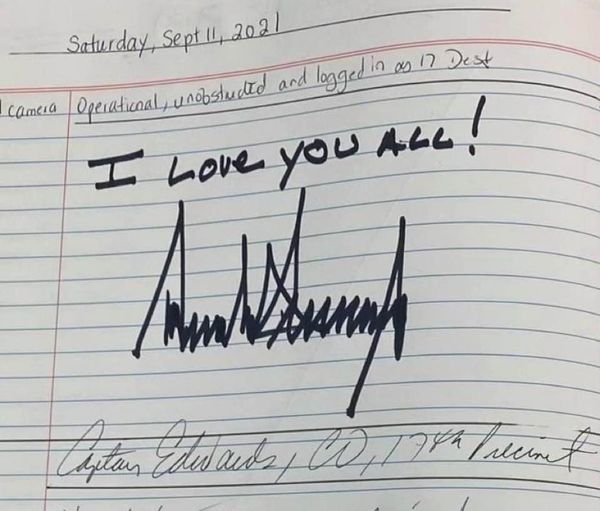 Saturday, Sept 11, 2021
camera Operational, unobstructed and logged in as 17 Desk
I Love you ALL!
Captain Edwards, CO, 17th Precinct